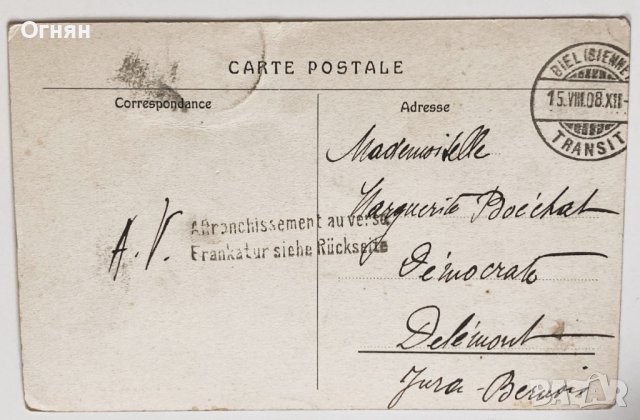 Огнян
CARTE POSTALE
Correspondance
Adresse
BIEL (BIENNE)
15.VIII.08.XII-
TRANSIT
Mademoiselle
Marguerite Boéchat
Démocrate
Delémont
Jura-Bernois
A. V.
Affranchissement au verso
Frankatur siehe Rückseite
BAZAR